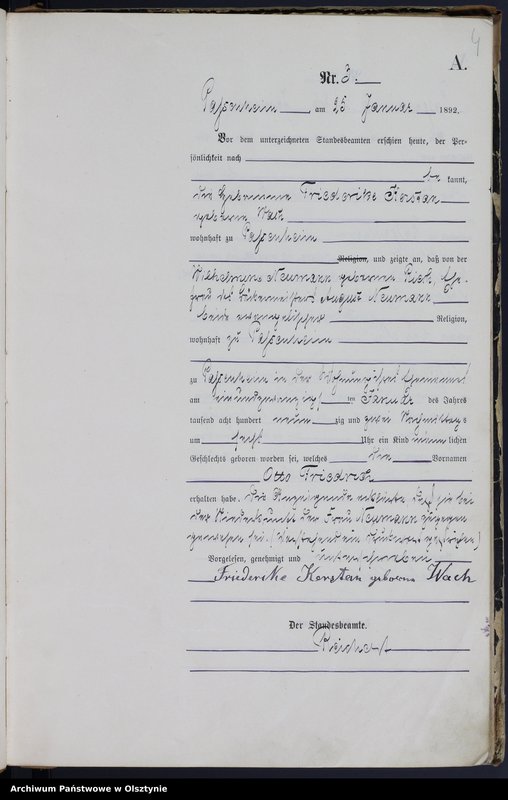 4
A.
Nr. 3.
Passenheim am 25 Januar 1892.
Vor dem unterzeichneten Standesbeamten erschien heute, der Per-
sönlichkeit nach
be kannt,
die Hebamme Friederike Kerstan
geborene Wach
wohnhaft zu Passenheim
Religion, und zeigte an, daß von der
Wilhelmine Neumann geborene Ehe-
frau des August Neumann
beide evangelischer Religion,
wohnhaft zu Passenheim
zu Passenheim in der Wohnung ihres Ehemannes
am ten Januar des Jahres
tausend acht hundert neun zig und zwei Vormittags
um Uhr ein Kind männlichen
Geschlechts geboren worden sei, welches die Vornamen
Otto Friedrich
erhalten habe. Die Anzeigende erklärte daß sie bei
der Niederkunft der Frau Neumann zugegen
gewesen sei. (Vorstehend ein Druckwort gestrichen)
Vorgelesen, genehmigt und unterschrieben
Friederike Kerstan geborene Wach
Der Standesbeamte.
Archiwum Państwowe w Olsztynie